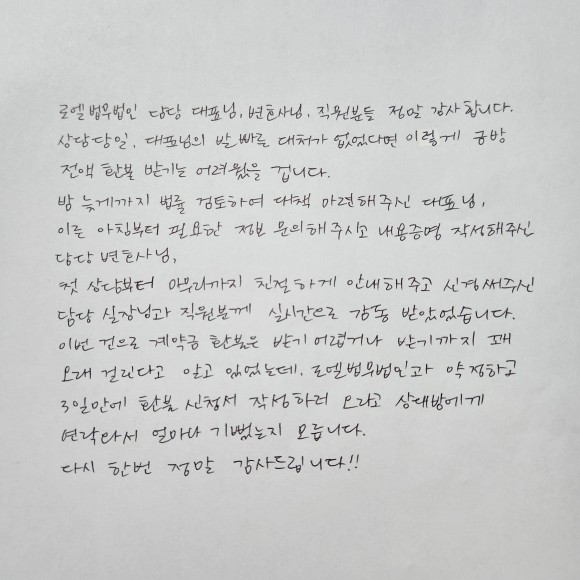 로엘법무법인 담당 대표님, 변호사님, 직원분들 정말 감사합니다.
상담당일, 대표님의 발빠른 대처가 없었다면 이렇게 금방
전액 환불 받기는 어려웠을 겁니다.
밤 늦게까지 법률 검토하여 대책 마련해주신 대표님,
이른 아침부터 필요한 정보 문의해주시고 내용증명 작성해주신
담당 변호사님,
첫 상담부터 마무리까지 친절하게 안내해주고 신경써주신
담당 실장님과 직원분께 실시간으로 감동 받았었습니다.
이번 건으로 계약금 환불은 받기 어렵거나 받기까지 꽤
오래 걸린다고 알고 있었는데, 로엘법무법인과 약정하고
3일만에 환불 신청서 작성하러 오라고 상대방에게
연락와서 얼마나 기뻤는지 모릅니다.
다시 한번 정말 감사드립니다!!